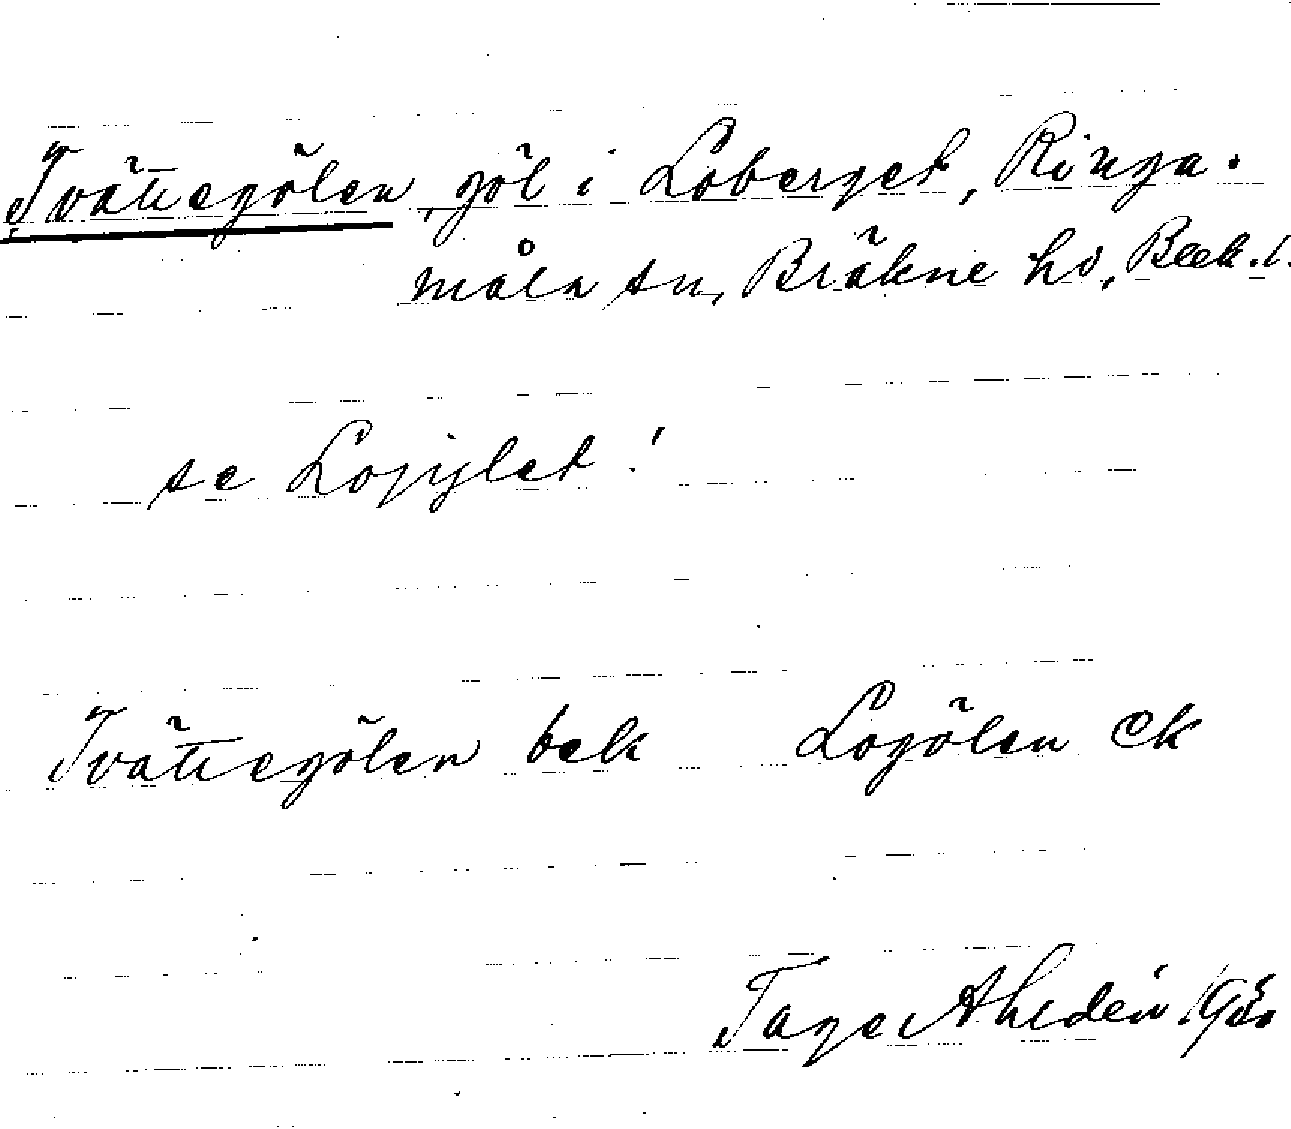 Tvättegölen, göl i Loberget, Ringa-
måla sn, Bräkne hd, Blek. l.
se Logylet!
Tvättegölen bek Logölen ek
Tage Ahldén